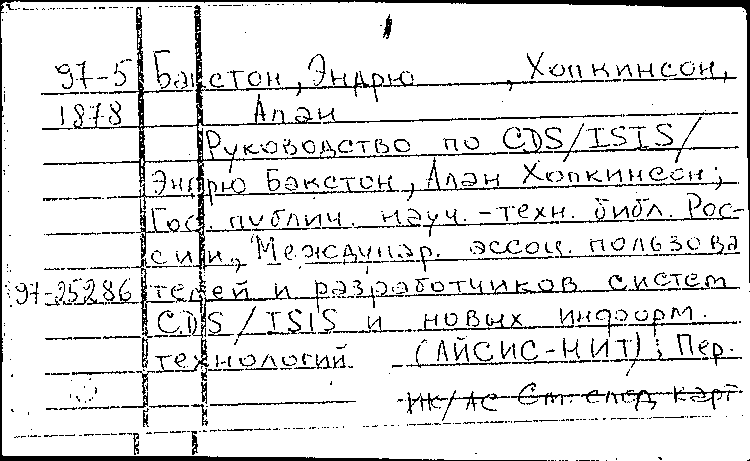 97-5 Бэкстон, Эндрю , Хопкинсон,
1878 Алан
Руководство по CDS/ISIS/
Эндрю Бэкстон, Алан Хопкинсон;
Гос. публич. науч.-техн. библ. Рос-
сии, Междунар. ассоц. пользова
97-25286 телей и разработчиков систем
CDS/ISIS и новых информ.
технологий (АЙСИС-НИТ); Пер.
ИК/АС См. след карт